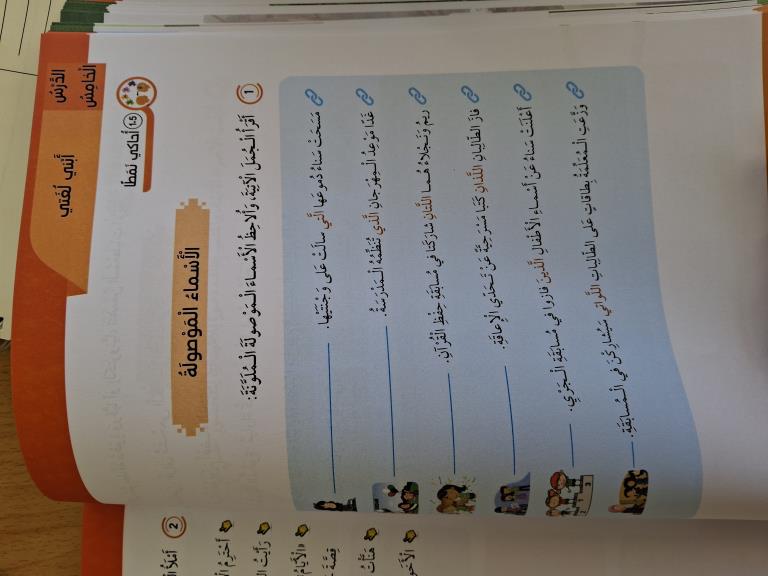 الدَّرْسُ الْخَامِسُ
أَبْني لُغَتي
1.5 أُحاكي نَمَطًا
الْأَسْماءُ الْمَوْصولَةُ
1 أَقْرَأُ الْجُمَلَ الْآتِيَةَ، وَأُلاحِظُ الْأَسْماءَ الْمَوْصولَةَ الْمُلَوَّنَةَ:
مَسَحَتْ سَناءُ دُموعَها الَّتي سالَتْ عَلى وَجْنَتَيْها.
غَدًا مَوْعِدُ الْمِهْرَجانِ الَّذي تُنَظِّمُهُ الْمَدْرَسَةُ.
ريمُ وَنَجْلاءُ هُما اللَّتانِ شارَكَتا في مُسابَقَةِ حِفْظِ الْقُرْآنِ.
فازَ الطّالِبانِ اللَّذانِ كَتَبا مَسْرَحِيَّةً عَنْ تَحَدّي الْإِعاقَةِ.
أَعْلَنَتْ سَناءُ عَنْ أَسْماءِ الْأَطْفالِ الَّذينَ فازوا في مُسابَقَةِ الْجَرْيِ.
وَزَّعَتِ الْمُعَلِّمَةُ بِطاقاتٍ عَلى الطّالِباتِ اللَّواتي سَيُشارِكْنَ في الْمُسابَقَةِ.
2 أَمْلَأُ
أَحْتَرِمُ
رَأَيْتُ
الْأَيّامُ
قِصَّةَ